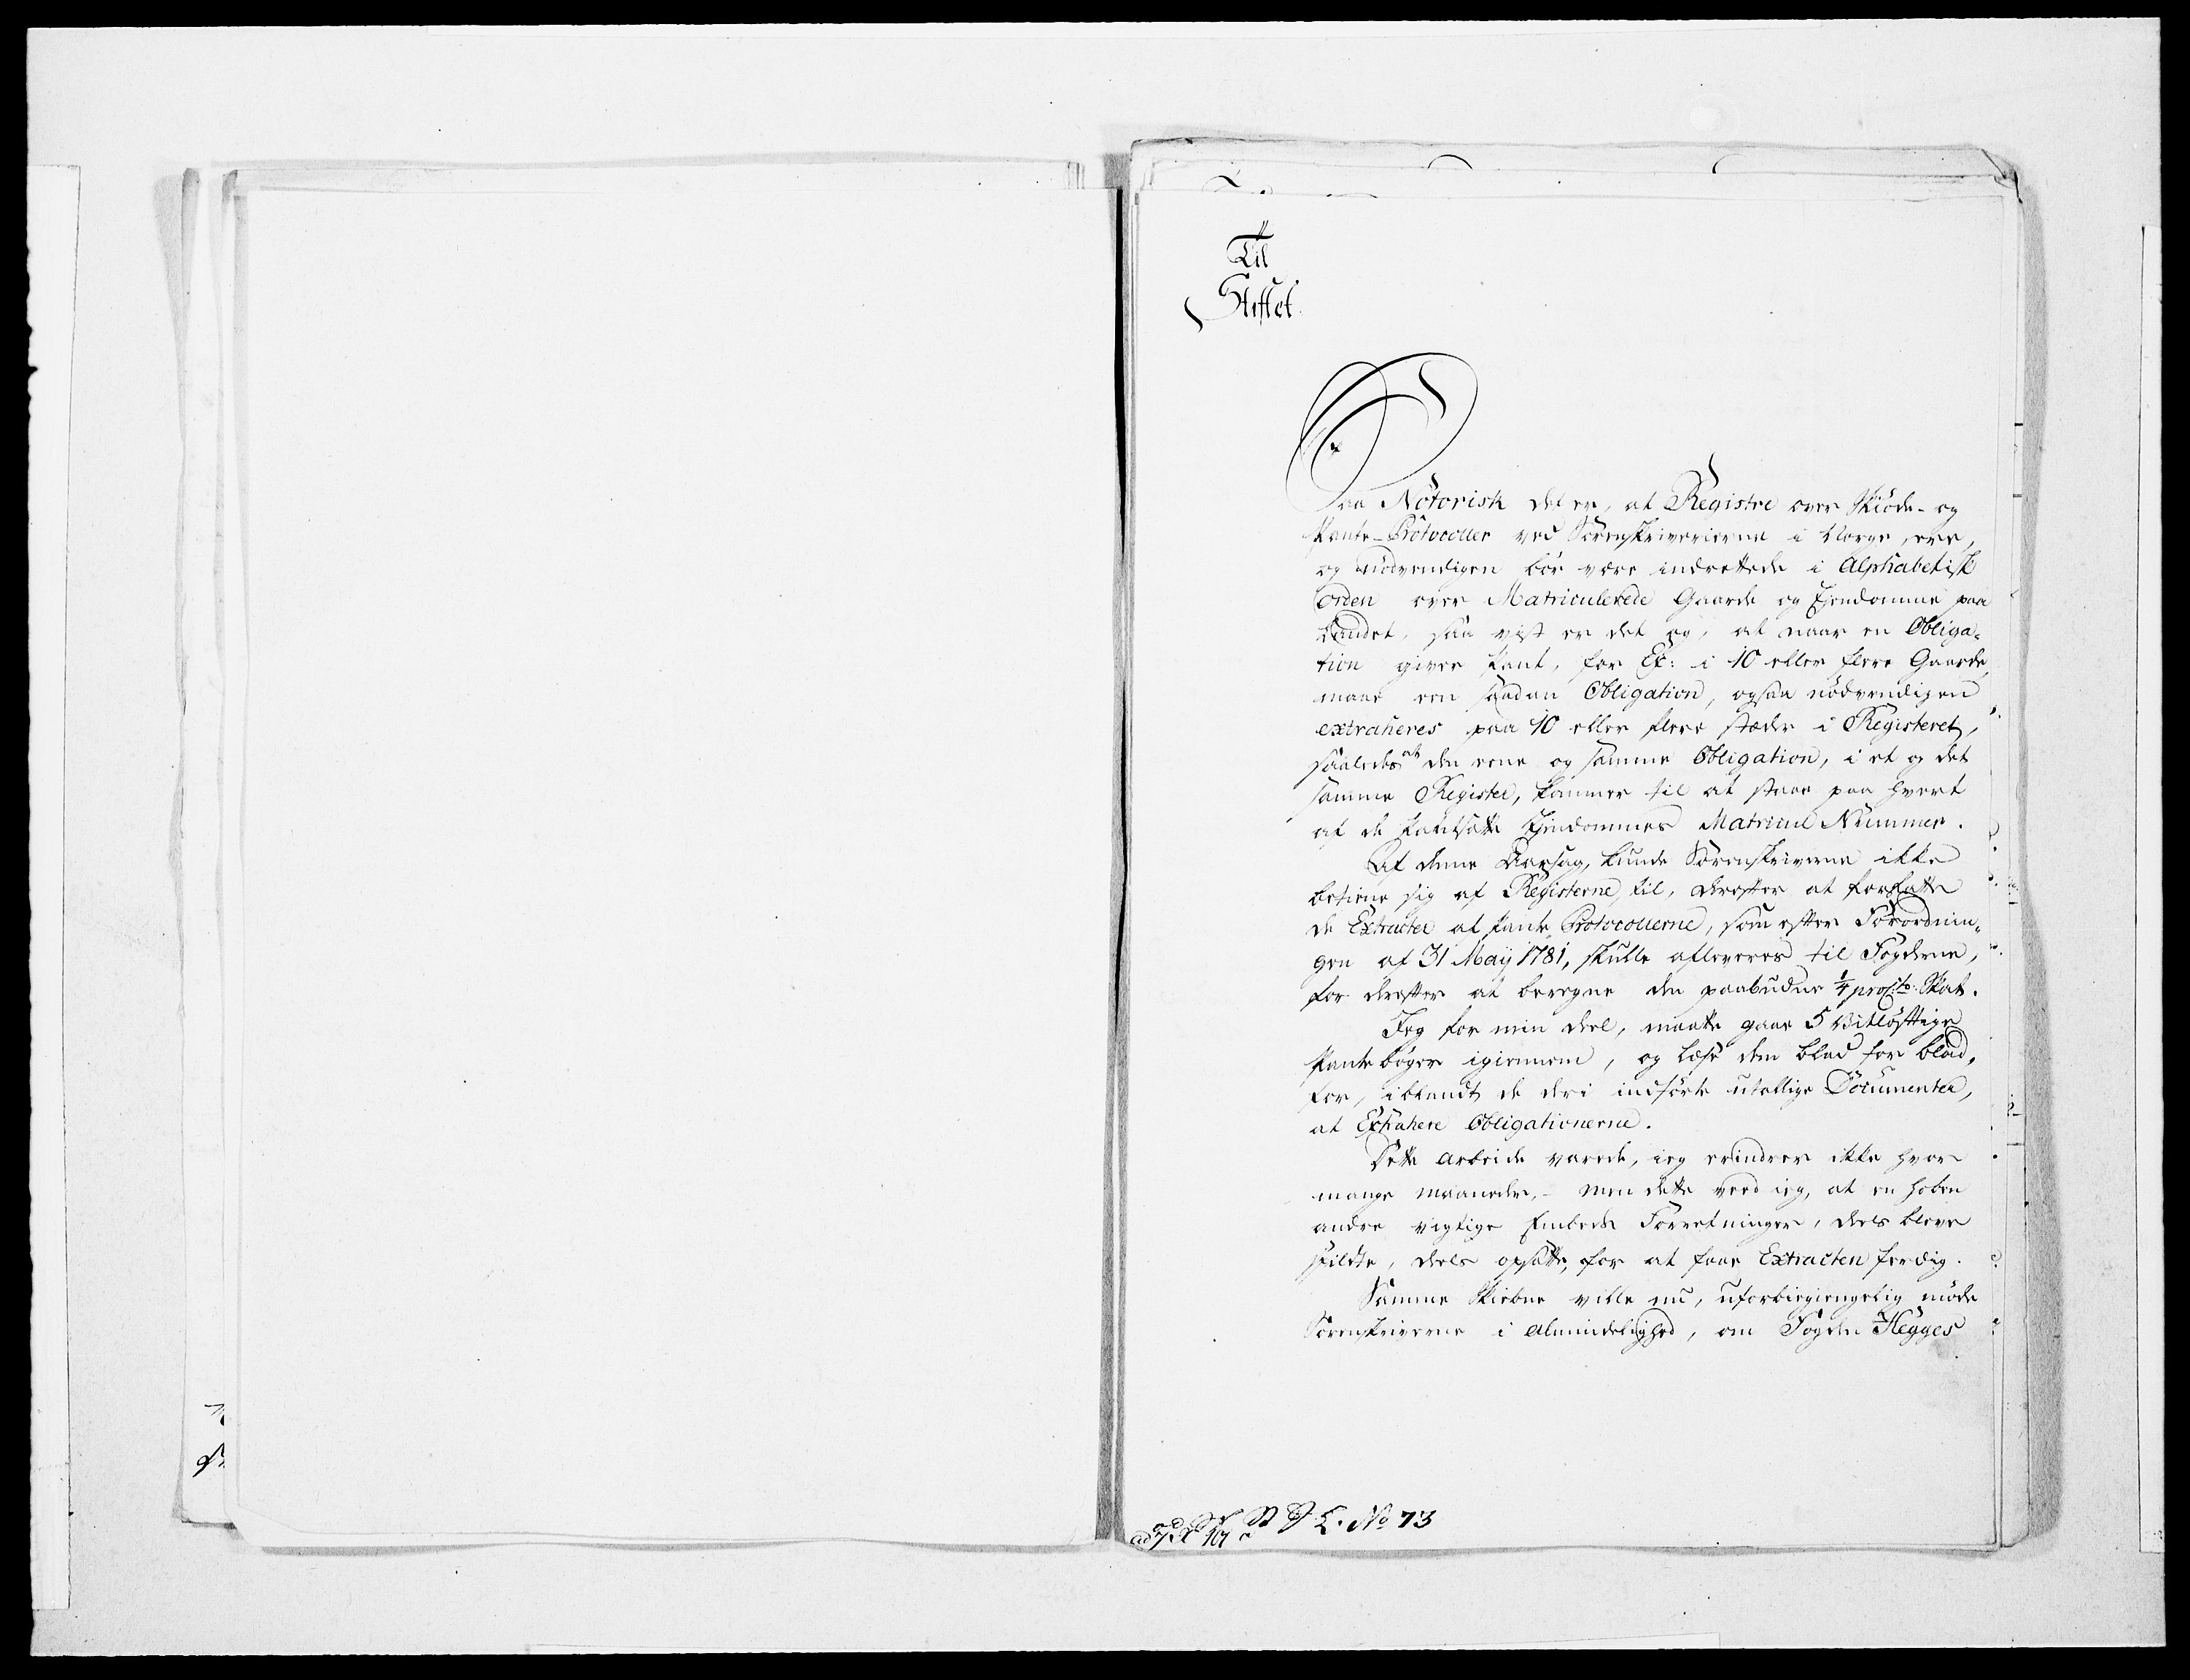 Til
Stiftet
Saa Notorisk det er, at Registre over Skiöde- og
Pante-Protocoller ved Sorenskriverierne i Norge, ere,
og nödvendigen bör være indrettede i Alphabetisk
Orden over Matriculerede Gaarde og Ejendomme paa
Landet, saa vist er det og, at naar en Obliga-
tion giver Pant, for Ex: i 10 eller flere Gaarde,
maae een saadan Obligation, ogsaa nödvendigen
extraheres paa 10 eller flere stæder i Registeret,
saaledes at den eene og samme Obligation, i et og det
samme Register, kommer til at staae paa hvert
af de pantsatte Ejendommes Matricul Nummer.
Af denne Aarsag, kunde Sorenskriverne ikke
betiene sig af Registerne til, derefter at forfatte
de Extracter af Pante Protocollerne, som efter Forordnin-
gen af 31 Maij 1781, skulle afleveres til Fogderne,
for derefter at beregne den paabudne 1/4 pro C:to Skat.
Jeg for min deel, maatte gaae 5 vitlöftige
Pantebøger igiennem, og læse dem blad for blad,
for, iblandt de deri indförte utallige Documenter,
at Extrahere Obligationerne.
Dette Arbeide varede, ieg erindrer ikke hvor
mange maaneder, - men dette veed ieg, at en hoben
andre vigtige Embeds Forretninger, deels bleve
spildte, deels opsatte, for at faae Extracten ferdig.
Samme Skiebne ville nu, uforbiegiengelig möde
Sorenskriverne i Almindelighed, om Fogden Hegges
No 73